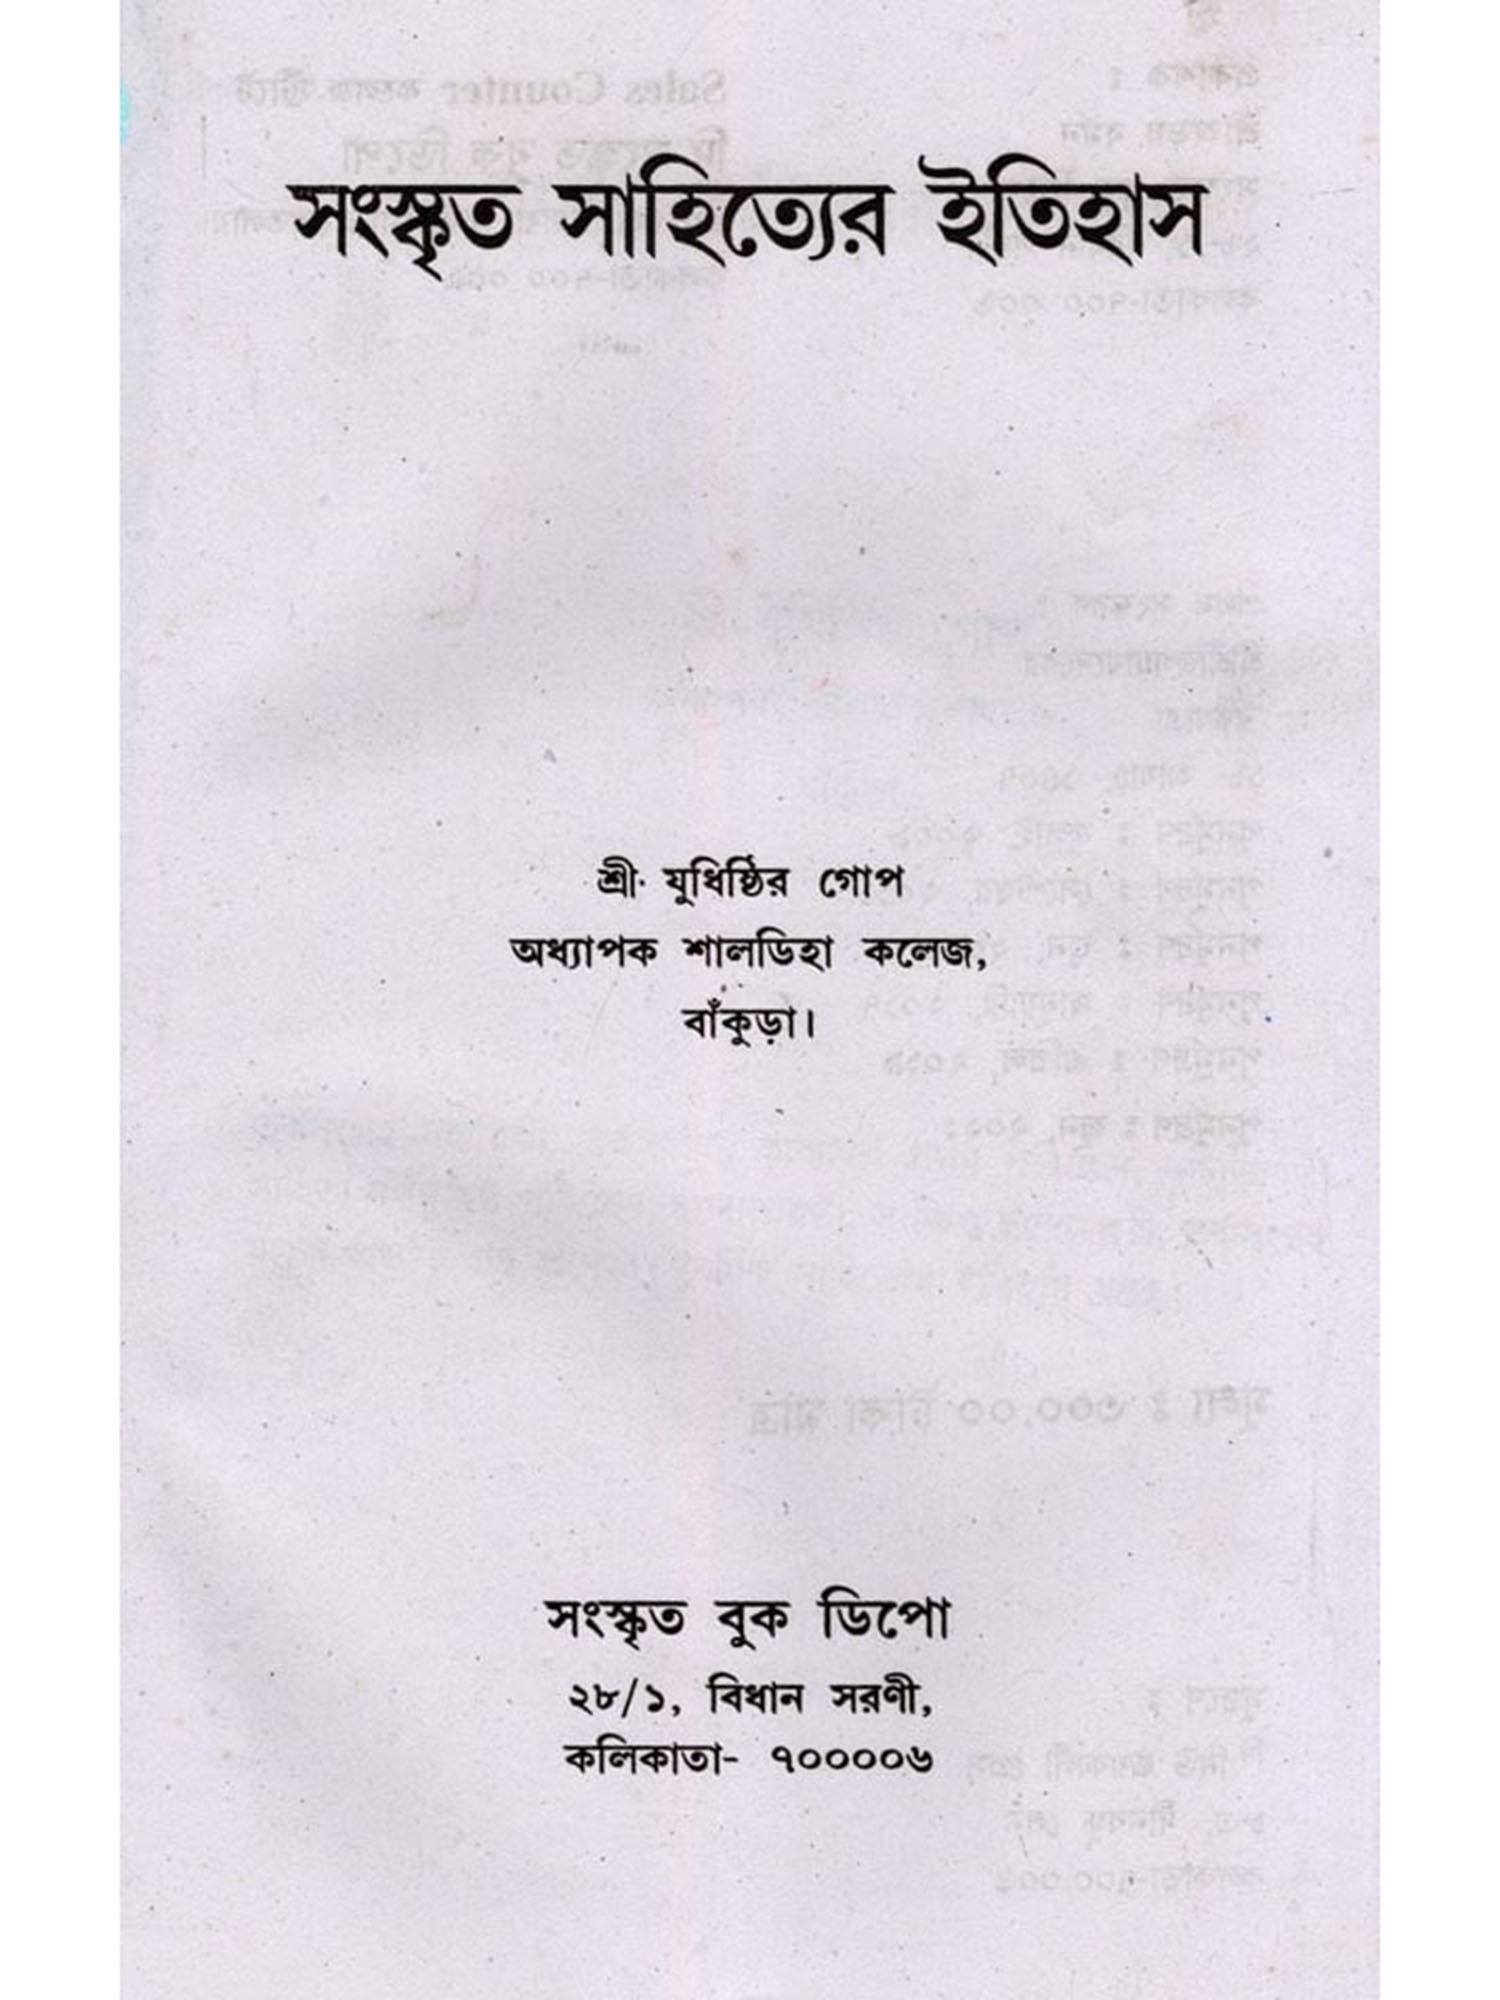 সংস্কৃত সাহিত্যের ইতিহাস
শ্রী যুধিষ্ঠির গোপ
অধ্যাপক শালডিহা কলেজ,
বাঁকুড়া।
সংস্কৃত বুক ডিপো
২৮/১, বিধান সরণী,
কলিকাতা- ৭০০০০৬